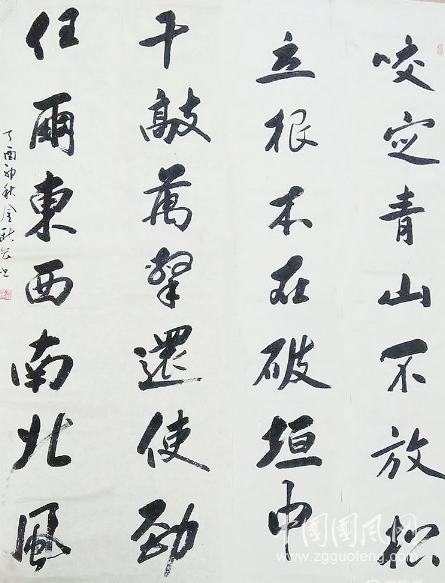 咬定青山不放松
立根本在破垣中
千敲萬擊還使勁
任爾東西南北風
丁酉仲秋
中国国风网
www.zgguofeng.com